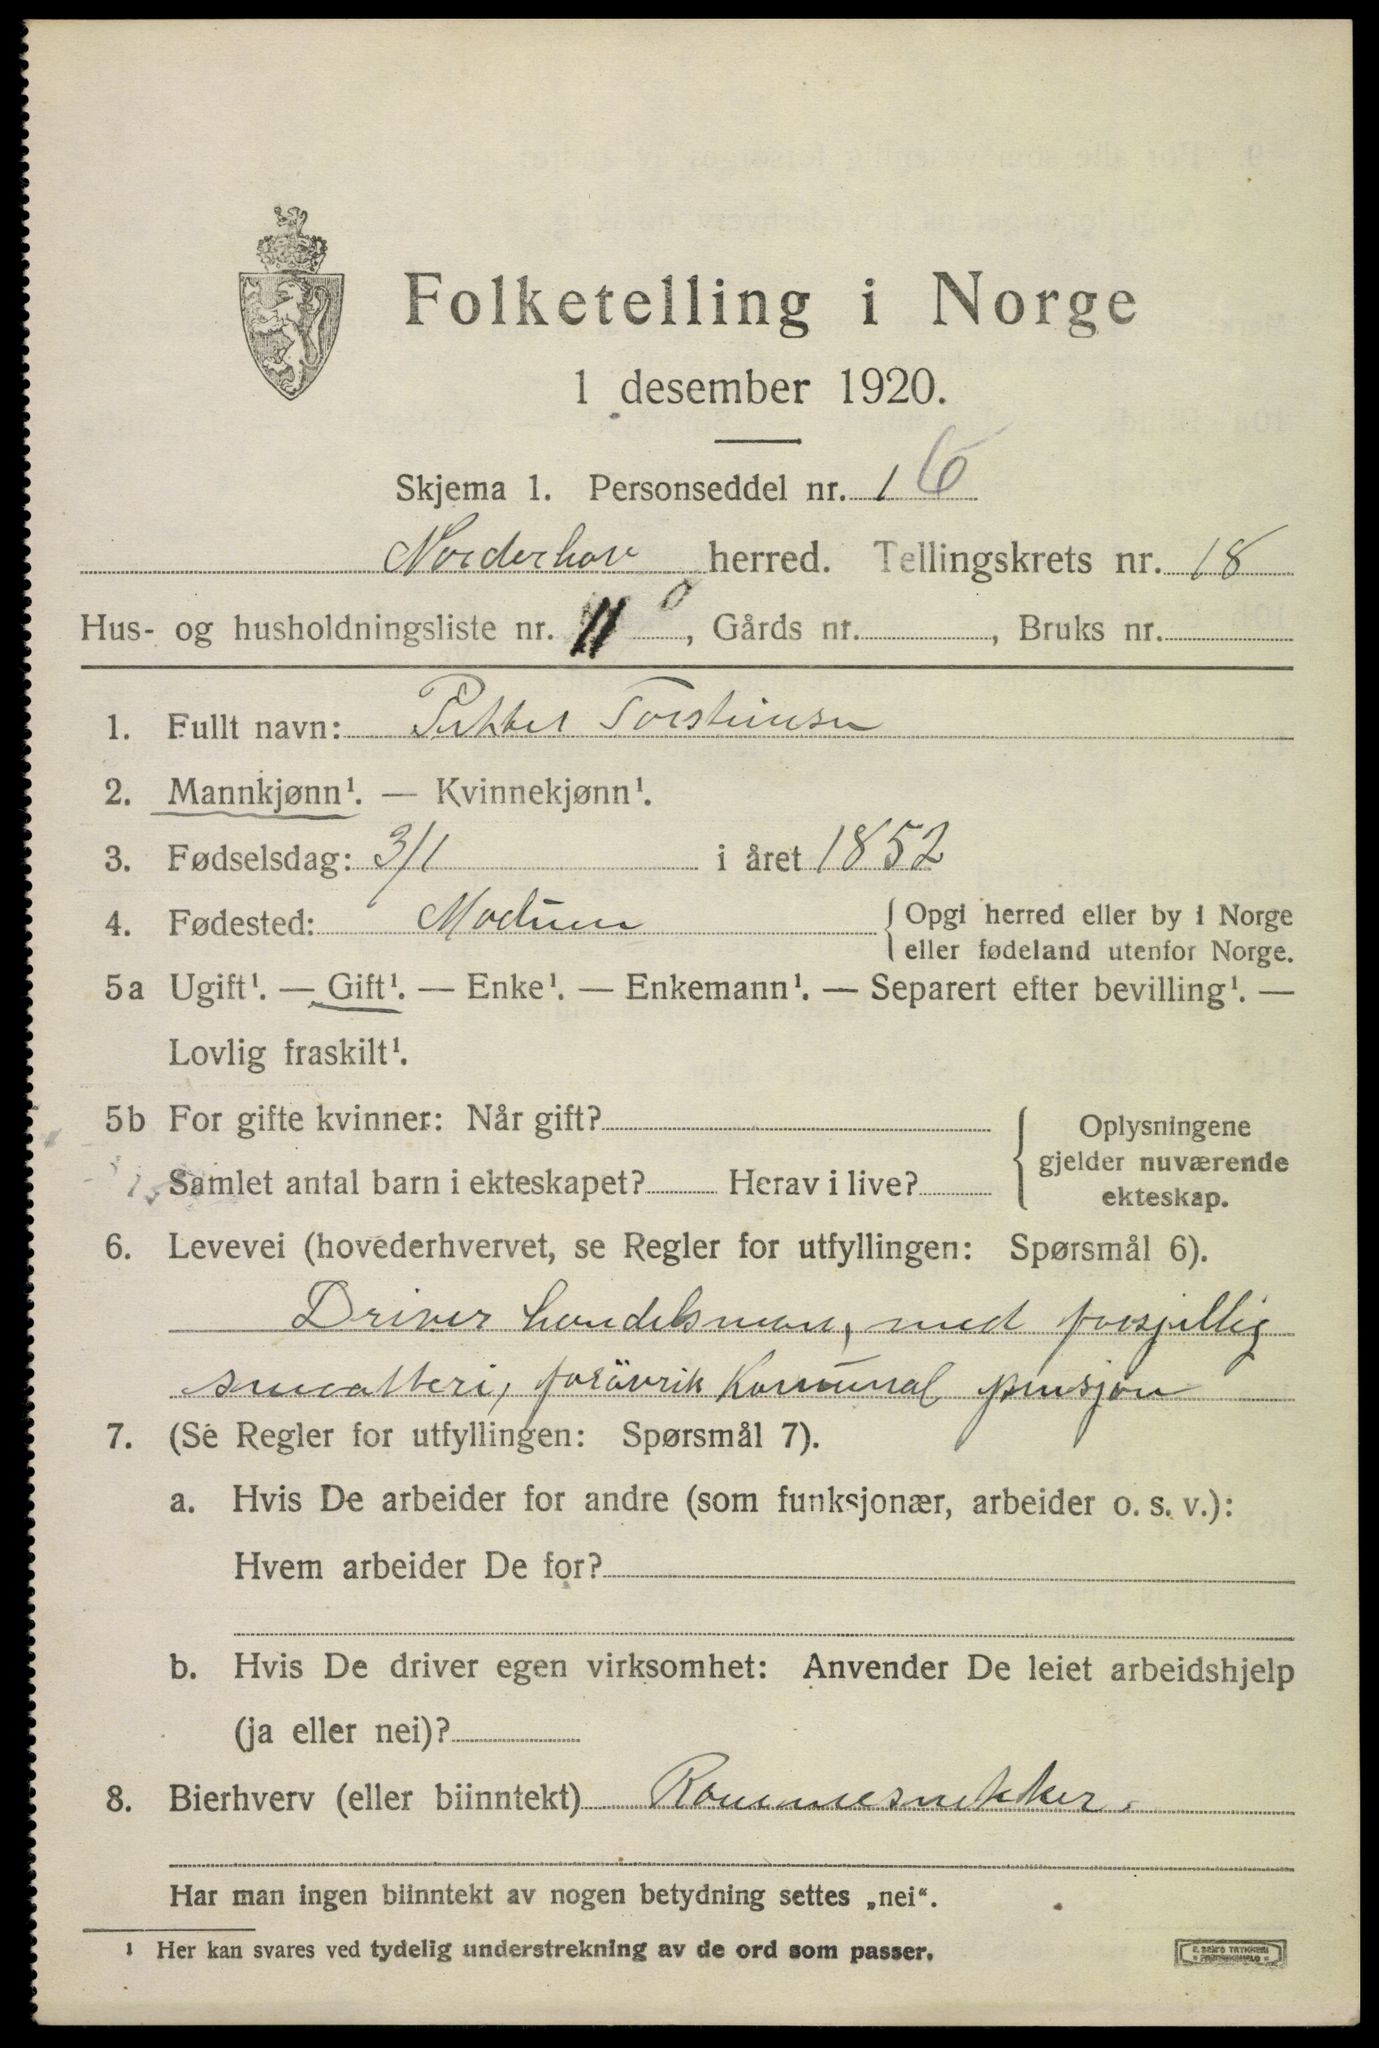 Folketelling i Norge
1 desember 1920.
Skjema 1. Personseddel nr. 1 6
Norderhov herred. Tellingskrets nr. 18
Hus- og husholdningsliste nr. 11, Gårds nr. , Bruks nr.
1. Fullt navn: Torsteinsen
2. Mannkjønn¹. — Kvinnekjønn¹.
3. Fødselsdag: 3/1 i året 1852
4. Fødested: Modum { Opgi herred eller by i Norge
eller fødeland utenfor Norge.
5a Ugift¹. — Gift¹. — Enke¹. — Enkemann¹. — Separert efter bevilling¹. —
Lovlig fraskilt¹.
5b For gifte kvinner: Når gift? { Oplysningene
gjelder nuværende
Samlet antal barn i ekteskapet? Herav i live?
ekteskap.
6. Levevei (hovederhvervet, se Regler for utfyllingen: Spørsmål 6).
Driver handelsman, med forsjellig
smaatteri, forövrik Komunal pensjon
7. (Se Regler for utfyllingen: Spørsmål 7).
a. Hvis De arbeider for andre (som funksjonær, arbeider o. s. v.):
Hvem arbeider De for?
b. Hvis De driver egen virksomhet: Anvender De leiet arbeidshjelp
(ja eller nei)?
8. Bierhverv (eller biinntekt) Rammesnekker.
Har man ingen biinntekt av nogen betydning settes „nei“.
¹ Her kan svares ved tydelig understrekning av de ord som passer.